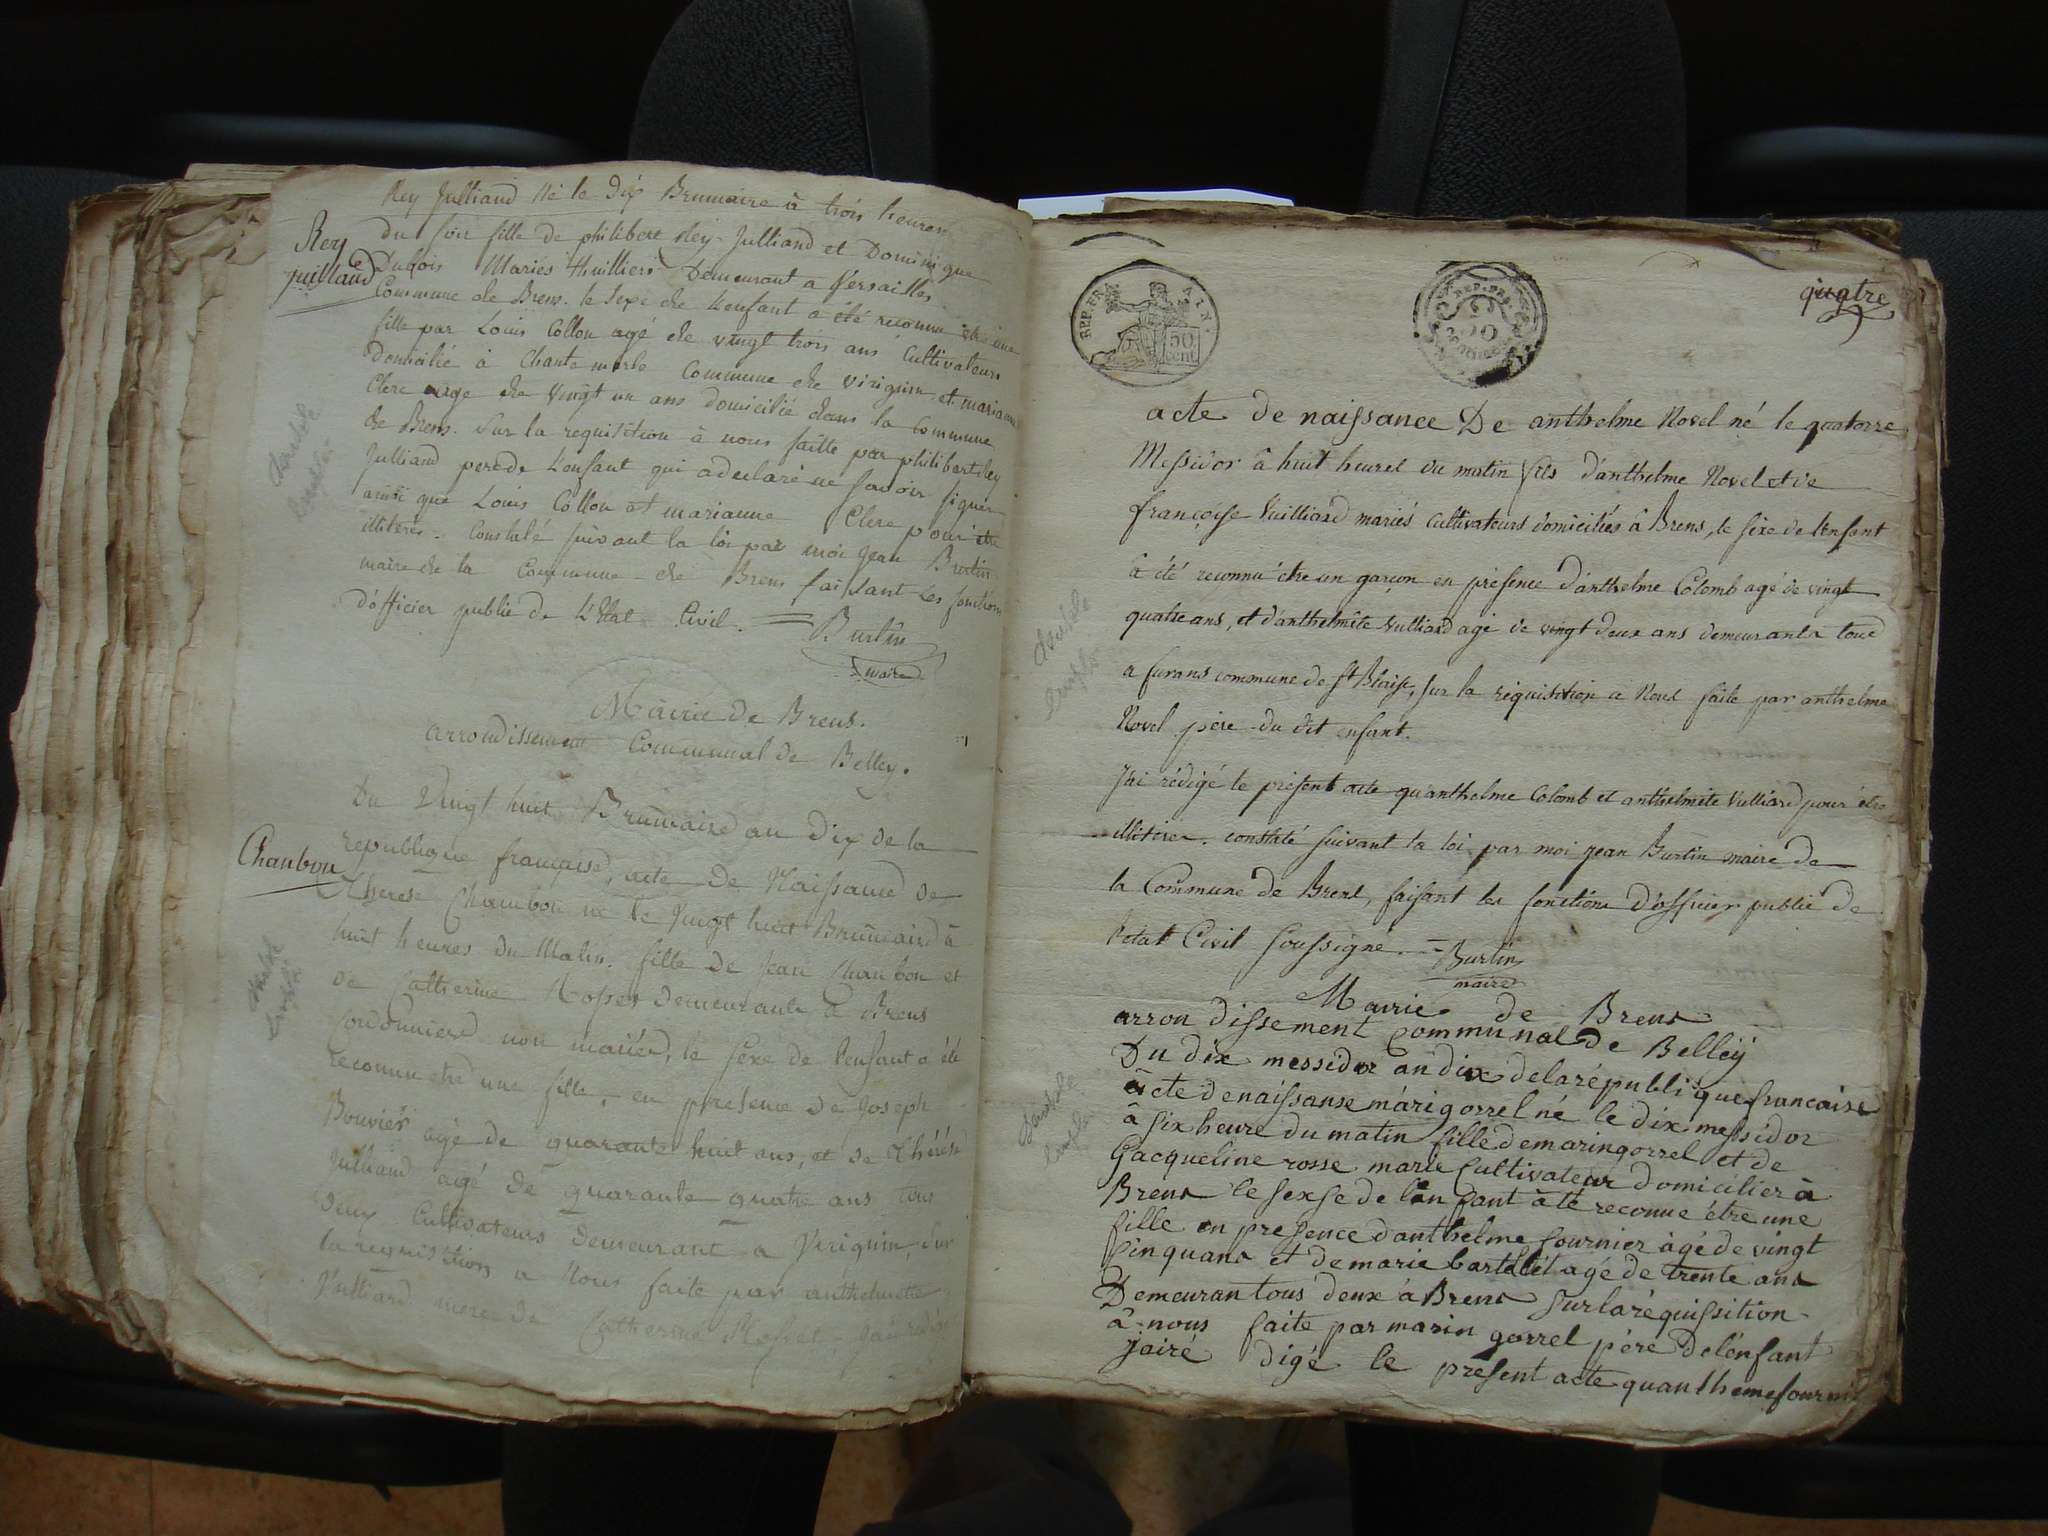 Rey Julliand Né le Dix Brumaire à trois heures
du soir fille de philibert Rey-Julliand et Dominique
Rey
Juilland
Dubois Mariés thuilliers Demeurant a Versailles
Commune de Brens. le sexe de L'enfant a été reconnu être une
fille par Louis Collon agé de vingt trois ans Cultivateurs
domicilié à Chantemerle Commune de virignin et marianne
Clerc age de vingt un ans domicilié dans la Commune
de Brens. Sur la requisition à nous faitte par philibert Rey
Julliand pere de L'enfant qui a declaré ne savoir signer
ainsi que Louis Collon et marianne Clerc pour être
illiterés. Constaté suivant la loi par moi jean Burtin
maire de la Commune de Brens faissant Les fonctions
d'officier public de L'Etat Civil.
Burtin
maire
Mairie de Brens.
arrondissement Communal de Belley.
Du Vingt huit Brumaire an Dix de la
republique française, acte de Naissance de
Chanbon
Therese Chambon né le Vingt huit Brumaire à
huit heures du Matin. fille de Jean Chanbon et
de Catherine Rosset demeurants à Brens
Cordonniers non mariés, le sexe de l'enfant a été
reconnu etre une fille, en presence de Joseph
Bouvier agé de quarante huit ans, et de Thérése
Julliand agé de quarante quatre ans tous
deux Cultivateurs demeurant a Virignin, sur
la requisition a Nous faite par anthelmette
Vulliard mere de Catherine Rosset, j'ai redigé
quatre
REP. FRA
50
cent
acte de naissance De anthelme Novel né le quatorze
Messidor à huit heures du matin fils d'anthelme Novel et de
françoise Vuilliard mariés cultivateurs domiciliés à Brens, le sexe de l'enfant
à été reconnu être un garçon en présence d'anthelme Colomb agé de vingt
quatre ans, et d'anthelmête Vulliard agé de vingt deux ans demeurants tous
a furans commune de St Blaise, sur la réquisition a Nous faite par anthelme
Novel père du dit enfant.
J'ai rédigé le présent acte qu'anthelme Colomb et anthelmête Vulliard pour être
illitéres. constaté suivant la loi par moi jean Burtin maire de
la Commune de Brens, faisant les fonctions d'officier public de
l'etat Civil soussigne.
Burtin
maire
Mairie de Brens
arron dissement Communal de Belleÿ
Du dix messidor an dix de la république francaise
àcte denaissanse màri gorrel né le dix messidor
à six heure du matin fille demarin gorrel et de
Gacqueline rosse marie Cultivateur domicilier à
Brens le sexse de l'enfant à été reconue être une
fille en presence danthelme fournier àgé de vingt
Cinq uans et de marie bartelét agé de trente ans
Demeuran tous deux à Brens sur la réquissition
à nous faite par marin gorrel pére de lénfant
jairé digé le présent acte quantheme fourni